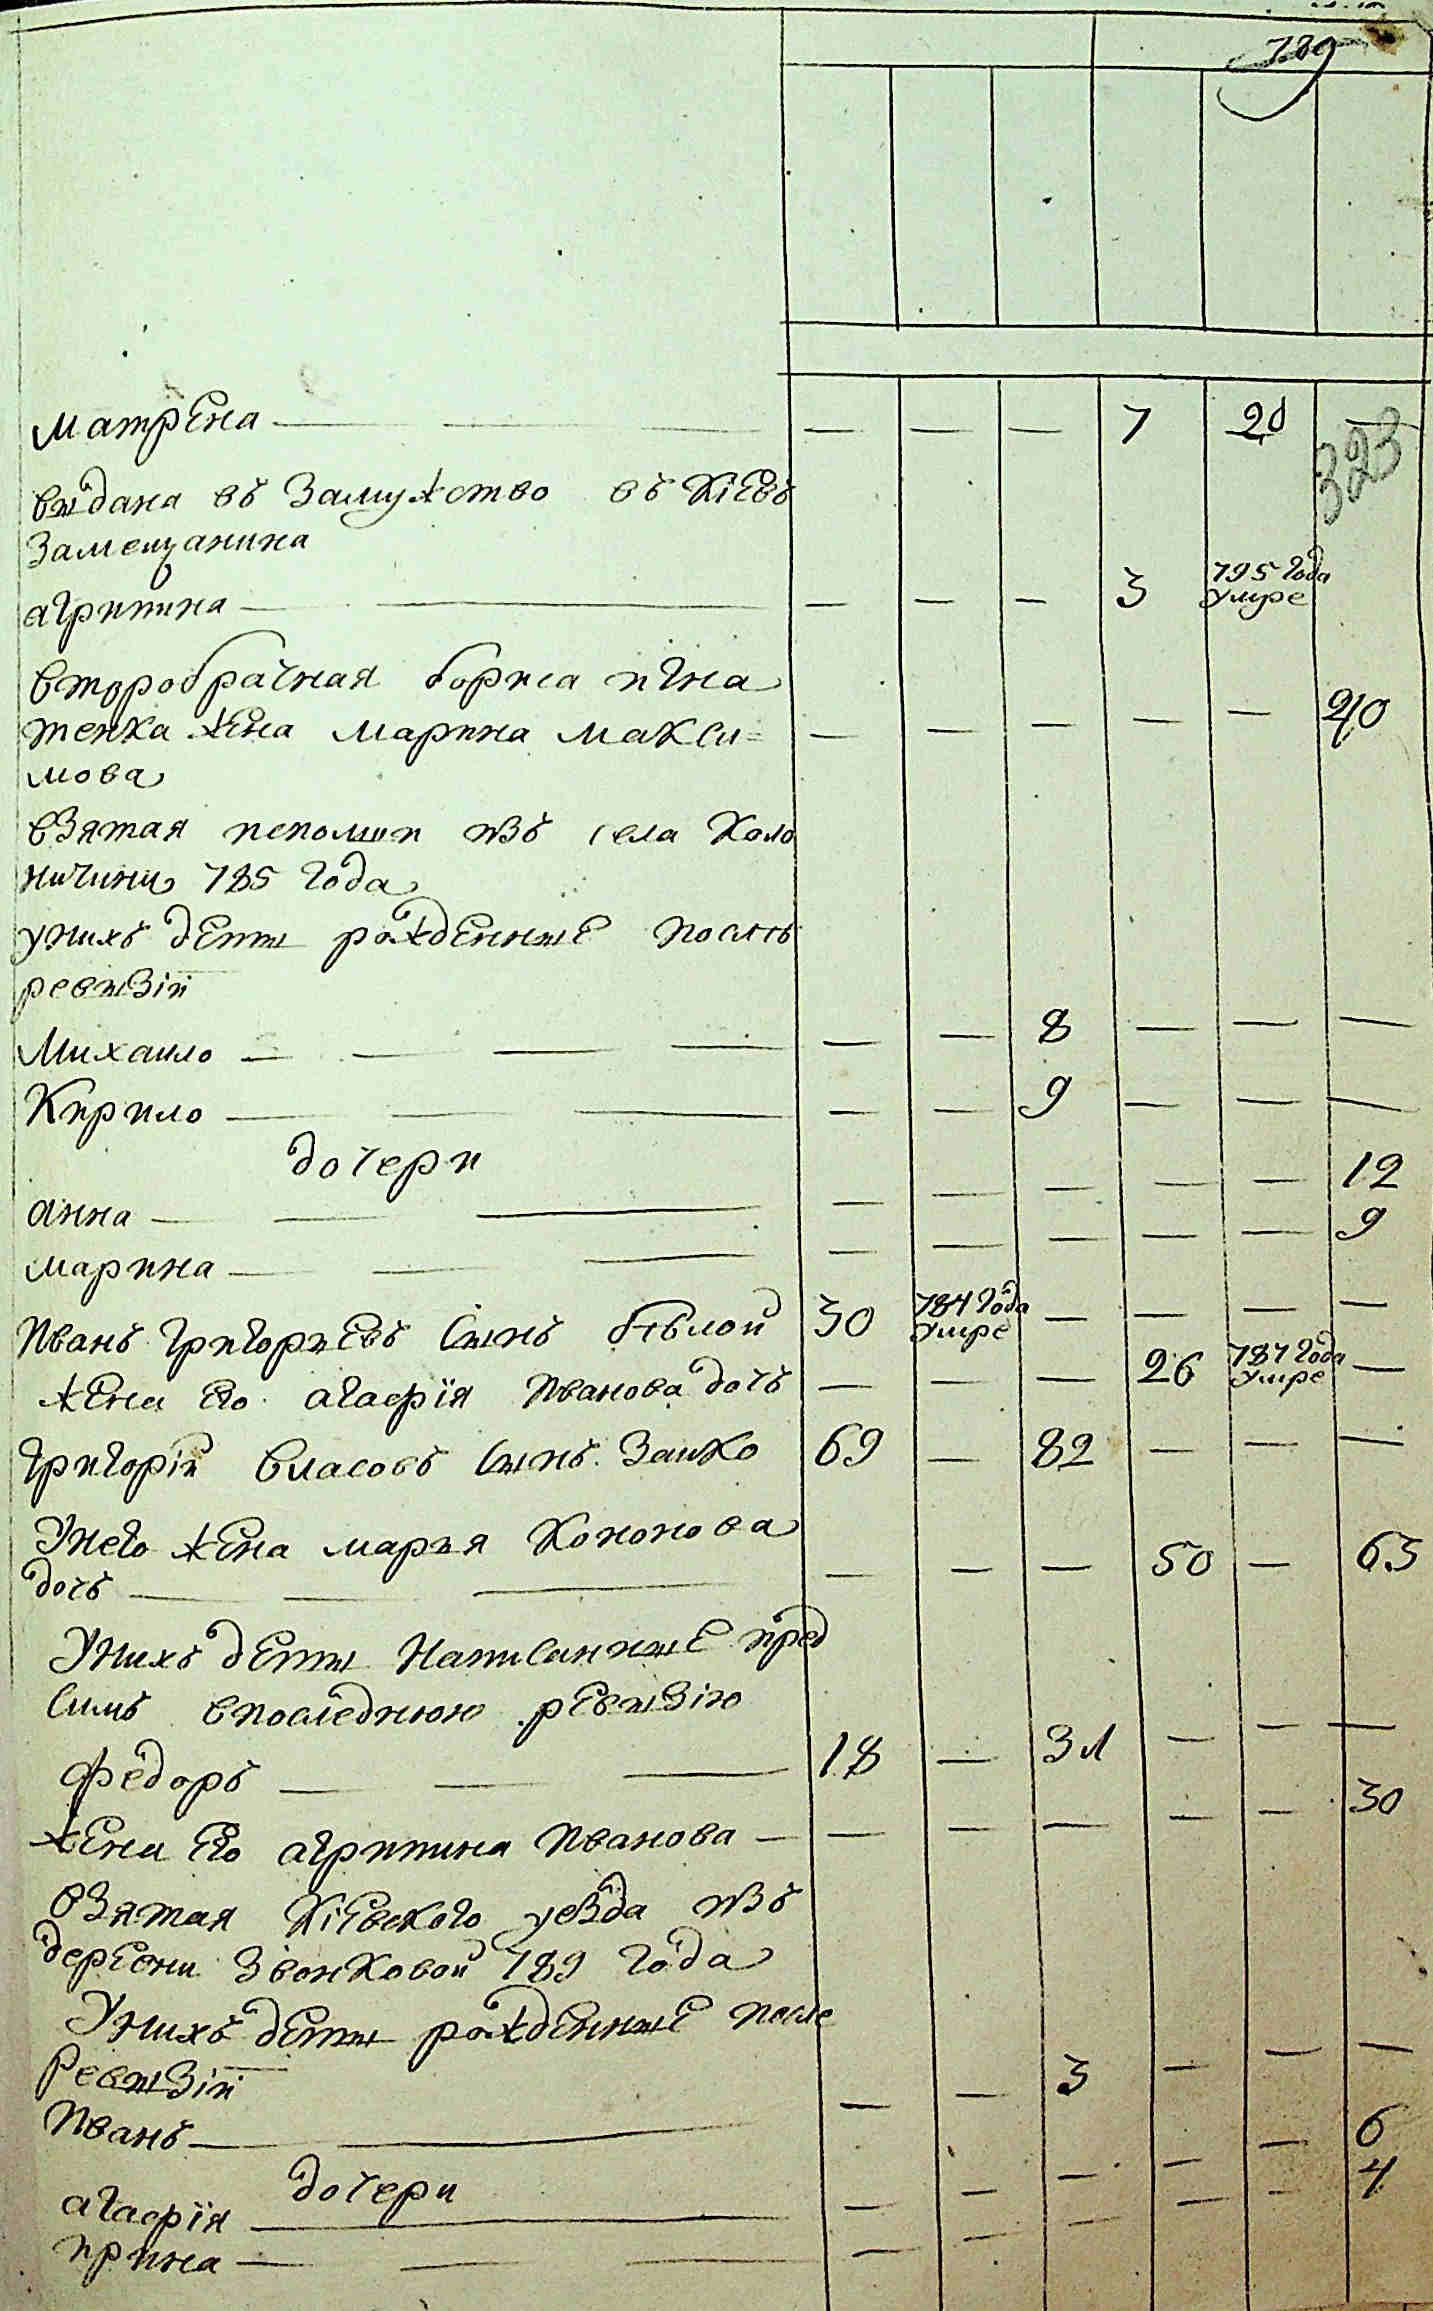 789
матрена — — — — — — 7 20 —
323
выдана въ Замужство въ Кіевъ
Замещанина
агрипина — — — — — 3 795 года умре
второбрачная бориса игна
тенка жена марина макси= — — — — — 40
мова
взятая ипомши изъ села Коло
ничини 785 года
унихъ дѣти рожденные послѣ
ревизіи
Михаило — — — — — — 8 — — —
Кирило — — — — — 9 — — —
дочери
анна — — — — — — — — 12
марина — — — — — — — — 9
иванъ григориевъ сынъ бѣлой 30 784 года умре — — — —
жена его агафїя иванова дочъ — — — 26 787 года умре —
григорій власовъ сынъ Заико 69 — 82 — — —
Унего жена маръя Кононова
дочъ — — — — — — 50 — 63
Унихъ дѣти написанные пред
симъ впоследнюю ревизію
федоръ — — — 18 — 31 — — —
жена его агрипина иванова — — — — — — 30
взятая Кіевского уезда изъ
деревни Звонковой 789 года
Унихъ дети рожденные после
Ревизіи
иванъ — — — — 3 — — —
дочери
агафїя — — — — — — 6
ирина — — — — — — — — 4